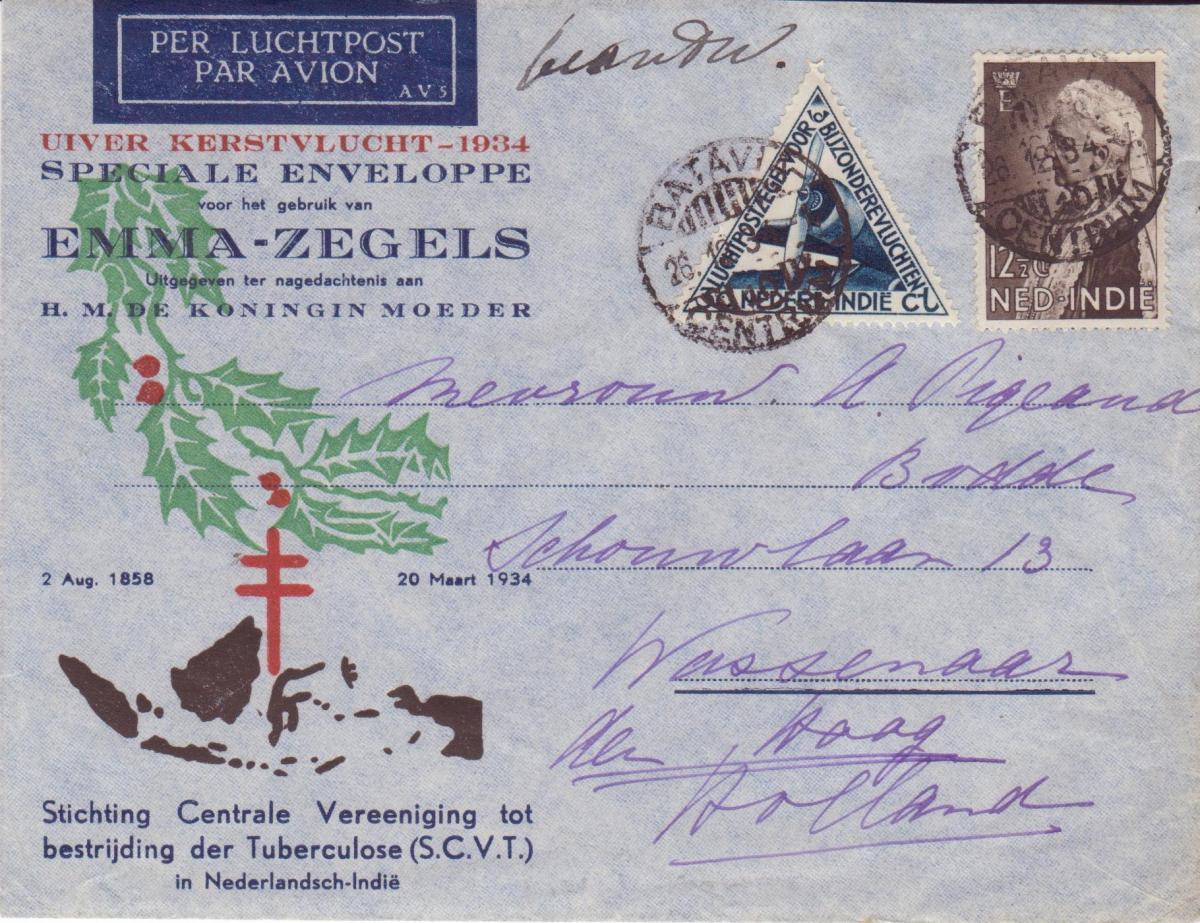 PER LUCHTPOST
PAR AVION
AV5
UIVER KERSTVLUCHT-1934
SPECIALE ENVELOPPE
voor het gebruik van
EMMA-ZEGELS
Uitgegeven ter nagedachtenis aan
H. M. DE KONINGIN MOEDER
LUCHTPOSTZEGEL VOOR BIJZONDERE VLUCHTEN
NEDERL-INDIË CT
BATAVIA
CENTRUM
E
12½ C
NED-INDIE
CENTRUM
Mevrouw A. Pigeaud
Bodde
Schouwlaan 13
Wassenaar
den Haag
Holland
2 Aug. 1858
20 Maart 1934
Stichting Centrale Vereeniging tot
bestrijding der Tuberculose (S.C.V.T.)
in Nederlandsch-Indië